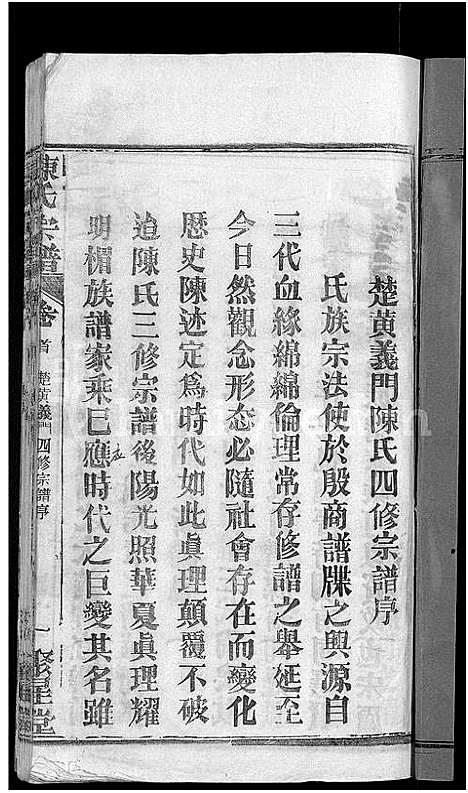 楚黄義門陳氏四修宗譜序
氏族宗法使於殷商譜牒之興源自
三代血緣綿綿倫理常存修譜之舉延至
今日然觀念形态必隨社會存在而變化
歷史陳述定爲時代如此眞理顛覆不破
迨陳氏三修宗譜後陽光照華夏眞理耀
明楣族譜家乘已應時代之巨變其名雖
陳氏宗譜
卷首
楚黄義門四修宗譜序
一
聚星堂